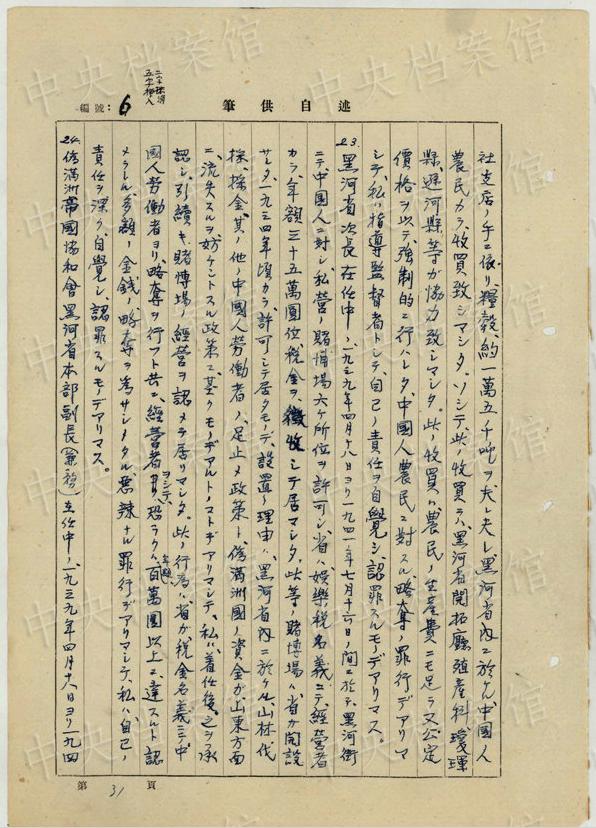 述自供筆
編號：6
二字抹消
五字插入
社支店ノ手ニ依リ糧穀約一萬五千吨ヲ夫レ夫レ黑河省內ニ於ケル中國人
農民カラ收買致シマシタ。ソシテ、此ノ收買ニハ、黑河省開拓廳殖產科、璦琿
縣、遜河縣等ガ協力致シマシタ。此ノ收買ハ、農民ノ生產費ニモ足ラヌ公定
價格ヲ以テ、強制的ニ行ハレタ、中國人農民ニ對スル略奪ノ罪行デアリマ
シテ、私ハ指導監督者トシテ、自己ノ責任ヲ自覺シ、認罪スルモノデアリマス。
23. 黑河省次長在任中、一九三九年四月十八日ヨリ一九四一年七月十六日ノ間ニ於テ、黑河街
ニテ中國人ニ對シ私營ノ賭博場六ケ所位ヲ許可シ、省ハ娛樂稅名義ニテ、經營者
カラ、年額三十五萬圓位稅金ヲ、徵收シテ居マシタ。此等ノ賭博場ハ、省ガ開設
サレタ一九三四年頃カラ、許可シテ居タモノデ、設置ノ理由ハ、黑河省內ニ於ケル、山林伐
採、採金、其ノ他ノ中國人勞働者ノ、足止メ政策ト、僞滿洲國ノ資金ガ、山東方面
ニ流失スルヲ妨ケントスル政策ニ、基クモノデアルトノコトデアリマシテ、私ハ着任後、之ヲ承
認シ、引續キ、賭博場ノ經營ヲ認メテ居リマシタ。此ノ行為ハ、省ガ稅金名義ニテ中
國人勞働者ヨリ、略奪ヲ行フト共ニ、經營者ヲシテ、恐ラク年額百萬圓以上ニ、達スルト認
メラレル、多額ノ金錢ノ略奪ヲ為サシメタル、惡辣ナル罪行デアリマシテ、私ハ、自己ノ
責任ヲ深ク、自覺シ、認罪スルモノデアリマス。
24. 僞滿洲帝國協和會黑河省本部副長（兼務）在任中、一九三九年四月十八日ヨリ一九四
第 31 頁
中央档案馆